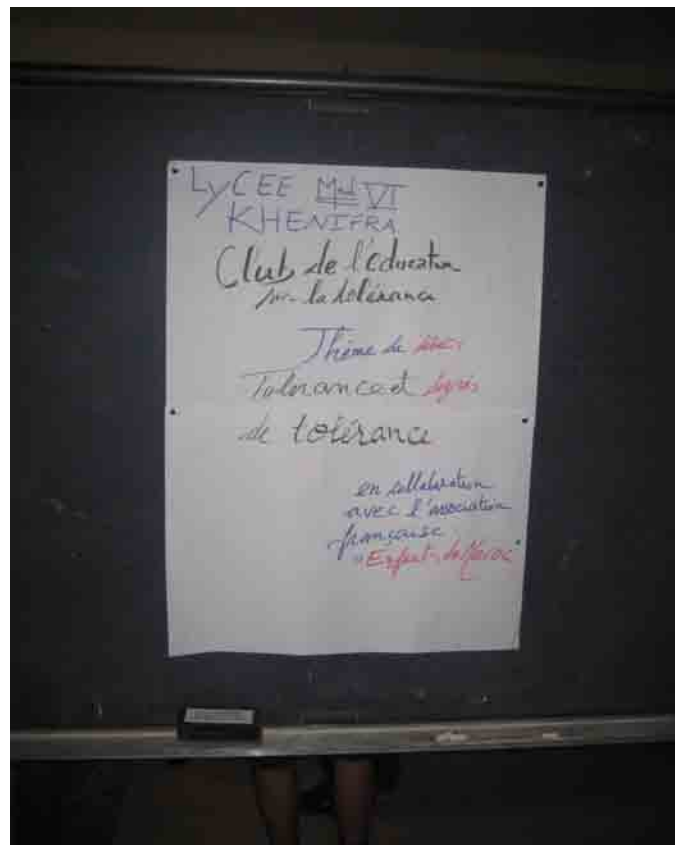 LYCEE Md VI
KHENIFRA
Club de l'éducation
sur la tolérance
Thème de
Tolérance et degrés
de tolérance
en collaboration
avec l'association
française
"Enfants du Maroc"